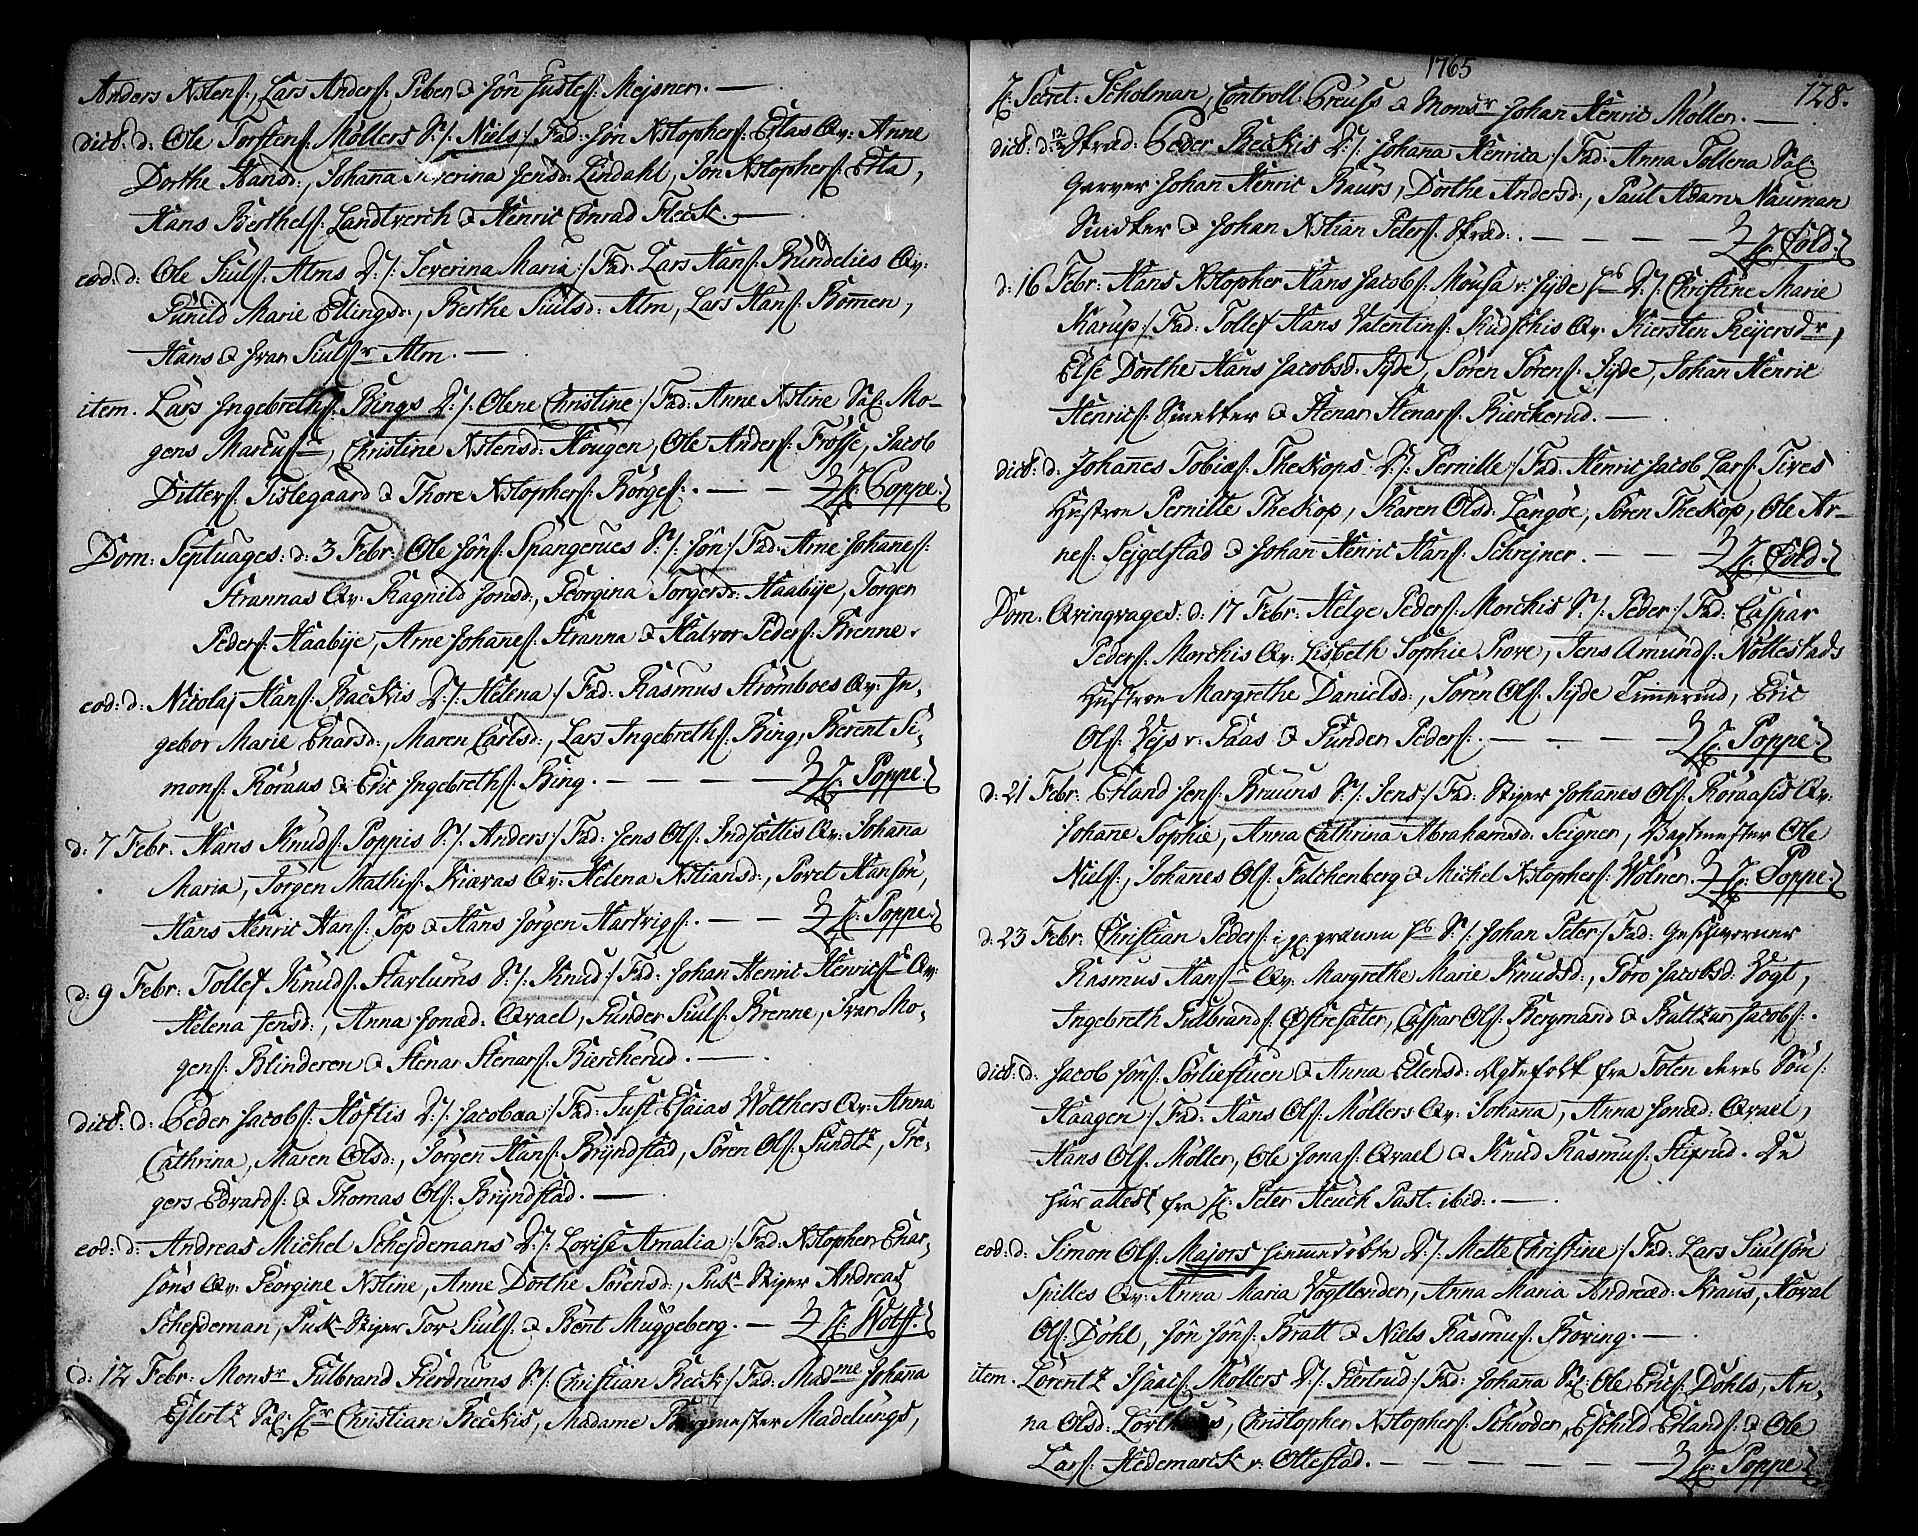 Anders Nstens:, Lars Anders: Piber & Jôn Justes: Mejsner. —
dict. d. Ole Torstens: Möllers S:/: Niels :/ Fad: Jôn Nstophers: Etlas Qv: Anne
Dorthe Hansd:, Johana Severina Jensd: Lindahl, Jôn Nstophers: Etla,
Hans Berthels: Landtverch & Henric Conrad Fleck. —
eod: d: Ole Siuls: Alms D:/: Severina Maria :/ Fad: Lars Hans: Bundelies Qv:
Gunild Marie Ellingsd:, Berthe Siulsd: Alm, Lars Hans: Bomen,
Hans & Ivar Siulsr Alm. —
item. Lars Ingebreths: Rings D:/: Olene Christine :/ Fad: Anne Nstine Sal: Mo-
gens Marcus:, Christine Nstensd: Hougen, Ole Anders: Frosse, Jacob
Ditters: Tislegaard & Thore Nstophers: Börges: — — H: Poppe.
Dom: Septuages: d: 3 Febr: Ole Jôns: Spangerues S:/: Jôn :/ Fad: Arne Johanes:
Strannas Qv: Ragnild Jonsd:, Georgina Torgersd: Haabye, Torger
Peders: Haabye, Arne Johanes: Stranna & Halvor Peders: Brenne.
eod: d: Nicolaj Hans: Backis D:/: Helena :/ Fad: Rasmus Strömboes Qv: In-
gebor Marie Enarsd:, Maren Carlsd:, Lars Ingebreths: Ring, Berent Si-
mons: Röraas & Eric Ingebreths: Ring. — — — — H: Poppe.
d: 7 Febr: Hans Knuds: Poppis S:/: Anders :/ Fad: Jens Ols: Indsættis Qv: Johana
Maria, Jörgen Mathis: Kiæras Qv: Helena Nstiansd:, Povel Hansön,
Hans Henric Hans: Pop & Hans Jörgen Hartvigs: — — H: Poppe.
d: 9 Febr: Tollef Knuds: Starlums S:/: Knud :/ Fad: Johan Henric Henrics: Qv:
Helena Jensd:, Anna Jonæd: Qvael, Gunder Siuls: Brenne, Ivar Mo-
gens: Blinderen & Stenar Stenars: Bierckerud. —
dict. d: Peder Jacobs: Hoftis D:/: Jacobaa :/ Fad: Just Esaias Wolthers Qv: Anna
Cathrina, Maren Olsd:, Jörgen Hans: Bryndstad, Sören Ols: Sundtz, Tre-
gers Edvards: & Thomas Ols: Bryndstad. —
eod: d: Andreas Michel Schejdemans D:/: Lovise Amalia :/ Fad: Nstopher Enar-
söns Qv: Georgine Nstine, Anne Dorthe Sörensd:, Puk-Stiger Andreas
Schejdeman, Puk-Stiger Tor Siuls: & Bent Muggeberg. — H: Wolff.
d: 12 Febr: Monsr Gulbrand Gierdrums S:/: Christian Beck :/ Fad: Madme Johana
Ejlertz Sal: Hr Christian Beckis, Madame Borgmester Madelungs,
1765
128.
H: Secret: Scholman, Controll: Preuss & Monsr Johan Henric Möller. —
dict. d: 12/2 Skræd: Peder Beckis D:/: Johana Henrica :/ Fad: Anna Tollena Sal:
Garver Johan Henric Baurs, Dorthe Andersd:, Paul Adam Nauman
Snidker & Johan Nstian Peters: Skræd: — — — — H: Cold.
d: 16 Febr: Hans Nstopher Hans Jacobs: Mousa v: Syde Hs D:/: Christine Marie
Karup :/ Fad: Tollef Hans Valentins: Kudschis Qv: Kiersten Reyersdr,
Else Dorthe Hans Jacobsd: Syde, Sören Sörens: Syde, Johan Henric
Henrics: Smelter & Stenar Stenars: Bierckerud. —
dict. d. Johanes Tobias: Theskops D:/: Pernille :/ Fad: Henric Jacob Lars: Tires
Hustroe Pernille Theskop, Karen Olsd: Langöe, Sören Theskop, Ole Ar-
nes: Sejgelstad & Johan Henric Hans: Schrejner. — — H: Cold.
Dom. Qvinqvages: d: 17 Febr: Helge Peders: Morckis S:/: Peder :/ Fad: Caspar
Peders: Morckis Qv: Lisbeth Sophie Prove, Jens Amunds: Nöllestads
Hustroe Margrethe Danielsd:, Sören Ols: Syde Timerud, Eric
Ols: Vejs v: Saas & Gunder Peders: — . — — — H: Poppe.
d: 21 Febr: Erland Jens: Bruuns S:/: Jens :/ Fad: Stiger Johanes Ols: Röraasis Qv:
Johane Sophie, Anna Cathrina Abrahamsd: Seigner, Vagtmester Ole
Niels:, Johanes Ols: Falchenberg & Michel Nstophers: Wölner. H: Poppe.
d: 23 Febr: Christian Peders: S:/: Johan Peter :/ Fad: Geschworner
Rasmus Hans: Qv: Margrethe Marie Knudsd:, Goro Jacobsd: Vogt,
Ingebreth Gulbrands: Östresäter, Caspar Ols: Bergmand & Baltzar Jacobs:
dict. d. Jacob Jôns: Sörliefluen & Anna Ellensd: Ægtefolk fra Toten deres Sön /:
Haagen :/ Fad: Hans Ols: Möllers Qv: Johana, Anna Jonæd: Qvael,
Hans Ols: Möller, Ole Jonas: Qvael & Knud Rasmus: Stifrud. De
har attest fra H: Peter Heuch Past: ibid: —
eod: d: Simon Ols: Majors D:/: Mette Christine :/ Fad: Lars Siulsön
Spilles Qv: Anna Maria Vogtlender, Anna Maria Andreæd: Kraus, Hoval
Ols: Döhl, Jôn Jôns: Bratt & Niels Rasmus: Boving. —
item. Lorentz Isaacs: Möllers D:/: Giertrud :/ Fad: Johana Sal: Ole Erics: Döhls, An-
na Olsd: Lorthuus, Christopher Nstophers: Schröder, Eschild Erlands: & Ole
Lars: Hedemarck v: Ottestad. — — — — — H: Poppe.